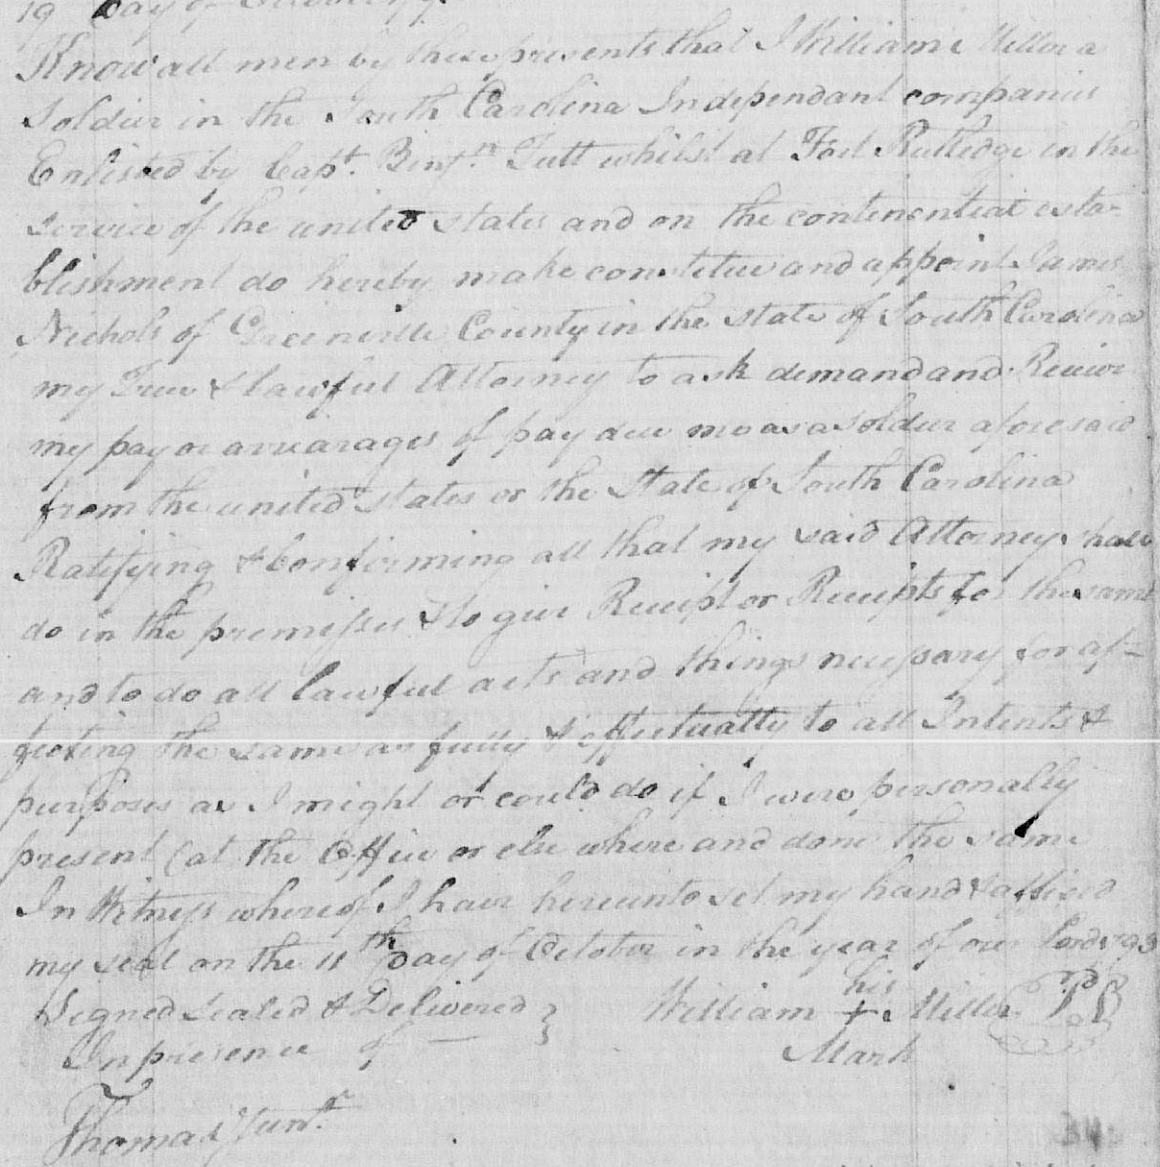 19 Day of
Know all men by these presents that I William Miller a
Soldier in the South Carolina Independant companies
Enlisted by Capt. Benjn. Tutt whilst at Fort Rutledge in the
service of the united states and on the continential esta-
blishment do hereby make constitue and appoint James
Nichols of Greenville County in the state of South Carolina
my True & lawful Attorney to ask demand and Receive
my pay or arrearages of pay due me as a soldier aforesaid
from the united states or the State of South Carolina
Ratifying & Confirming all that my said Attorney shall
do in the premisses & to give Receipt or Receipts for the same
and to do all lawful acts and things necessary for af-
fecting the same as fully & effectually to all Intents &
purposes as I might or could do if I were personally
present (at the Office or else where and done the same
In Witness whereof I have hereunto set my hand & affixed
my seal on the 11th Day of October in the year of our Lord 1793
Signed sealed & Delivered } William his + Miller
In presence of — Mark
Thomas
34